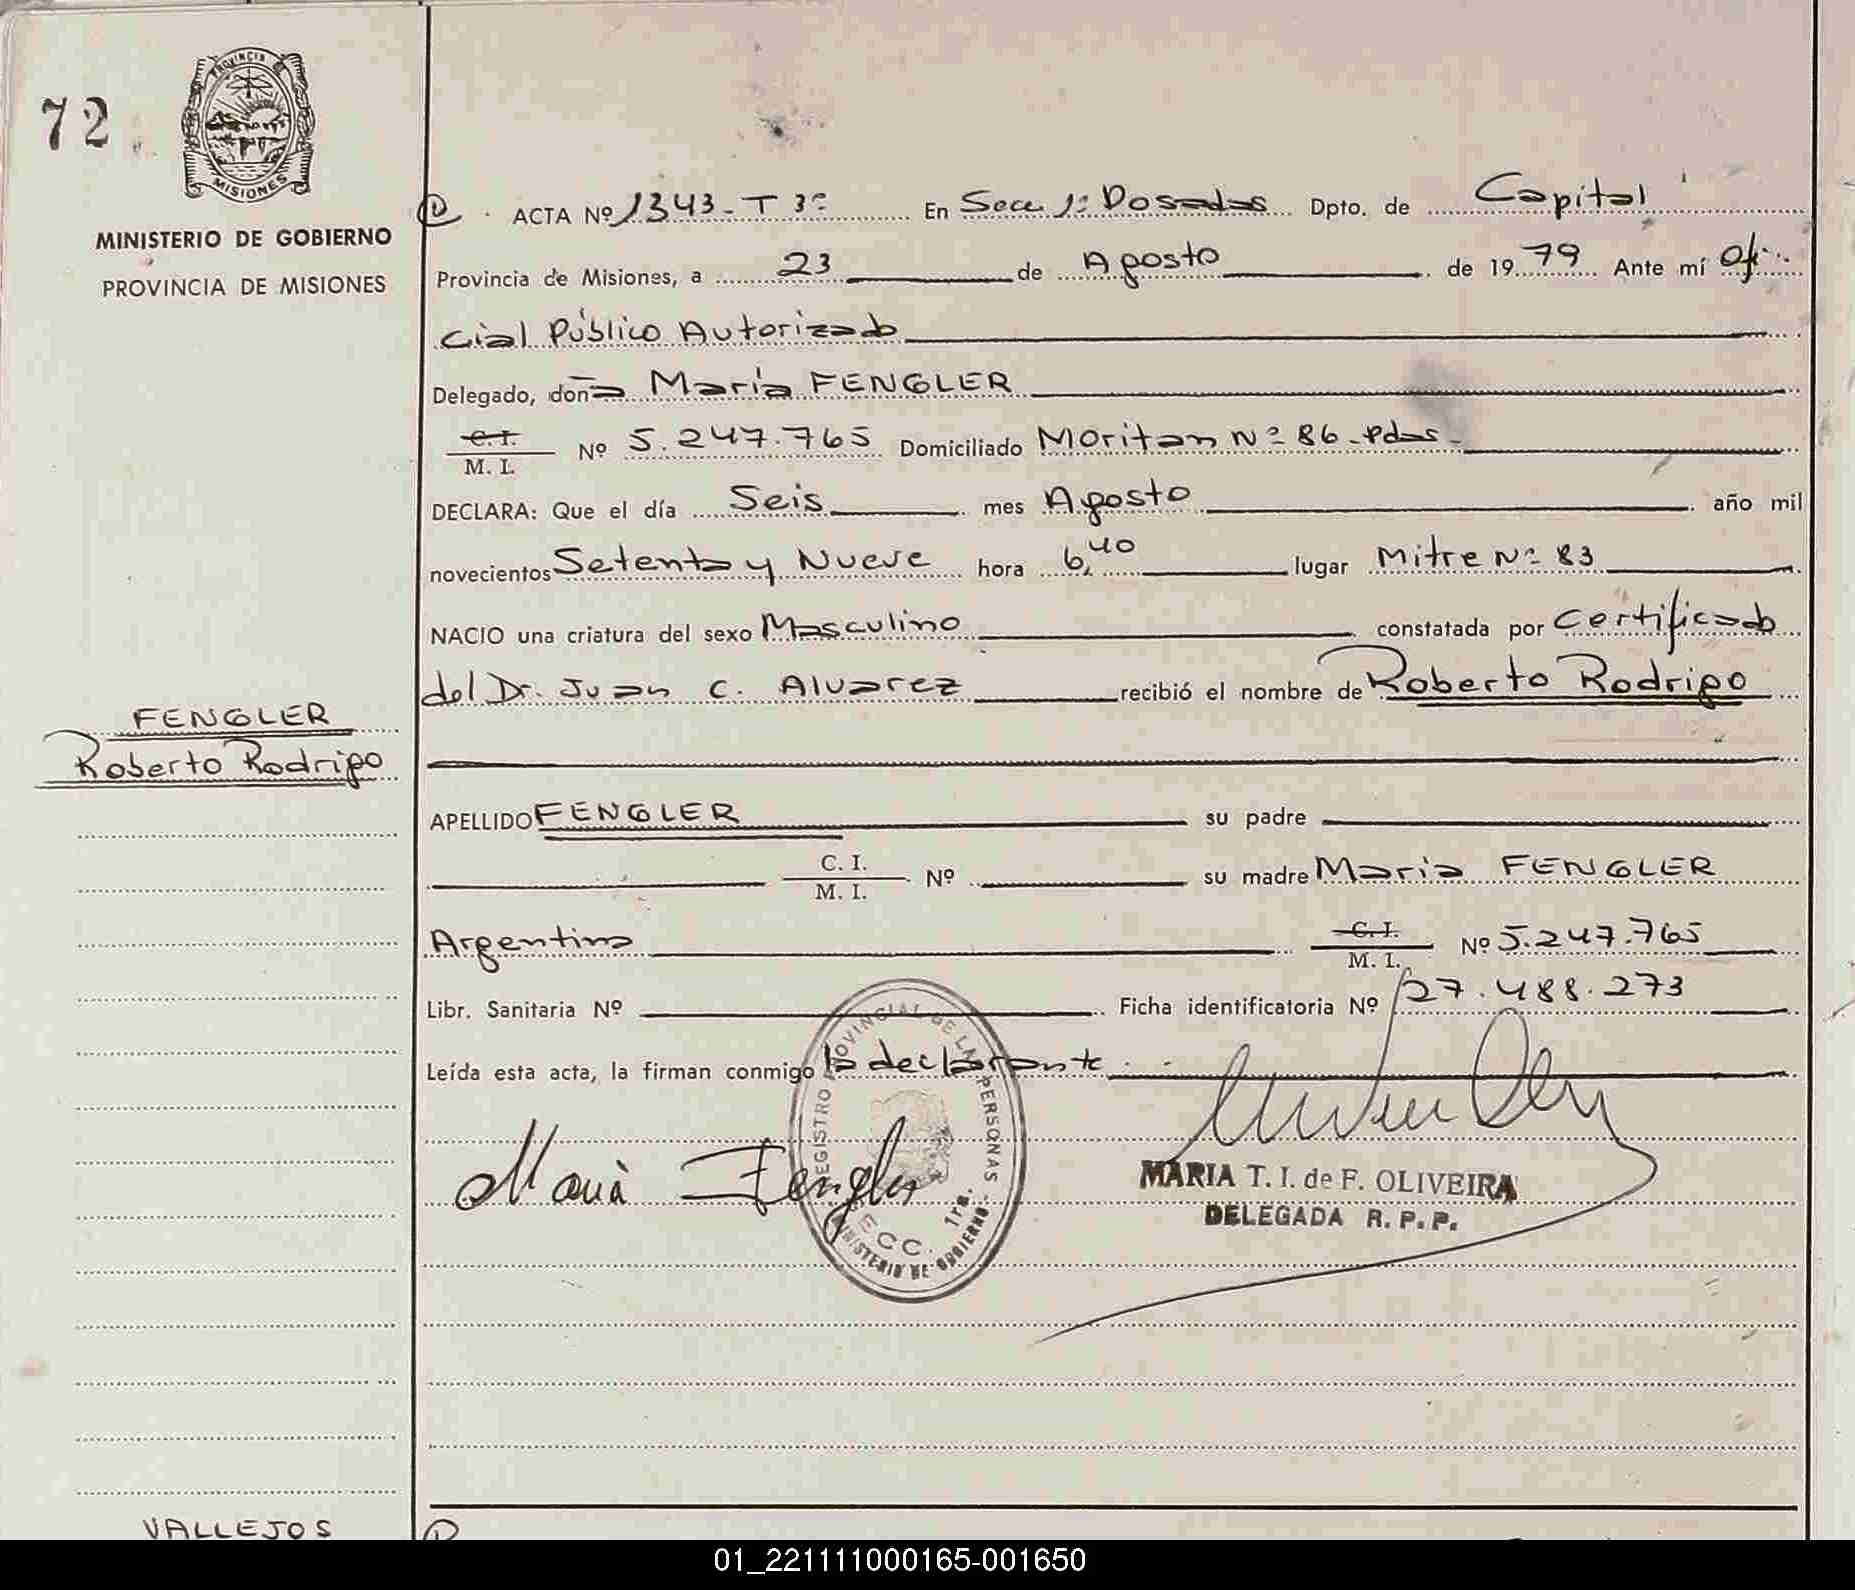 72
PROVINCIA DE
MISIONES
MINISTERIO DE GOBIERNO
PROVINCIA DE MISIONES
ACTA Nº 1343-T 3º En Secc 1ª Posadas Dpto. de Capital
Provincia de Misiones, a 23 de Agosto de 1979 Ante mí Ofi-
cial Público Autorizado
Delegado, doña María FENGLER
C. I.
M. I. Nº 5.247.765 Domiciliado Moritan Nº 86-Pdas-
DECLARA: Que el día Seis mes Agosto año mil
novecientos Setenta y Nueve hora 6,40 lugar Mitre Nº 83
NACIO una criatura del sexo Masculino constatada por Certificado
del Dr. Juan C. Alvarez recibió el nombre de Roberto Rodrigo
FENGLER
Roberto Rodrigo
APELLIDO FENGLER su padre
C. I.
M. I. Nº su madre Maria FENGLER
Argentina C. I.
M. I. Nº 5.247.765
Libr. Sanitaria Nº Ficha identificatoria Nº 27.488.273
Leída esta acta, la firman conmigo la declarante
María Fengler
REGISTRO PROVINCIAL DE LAS PERSONAS
SECC. 1ra.
MINISTERIO DE GOBIERNO
MARIA T. I. de F. OLIVEIRA
DELEGADA R. P. P.
VALLEJOS
01_221111000165-001650